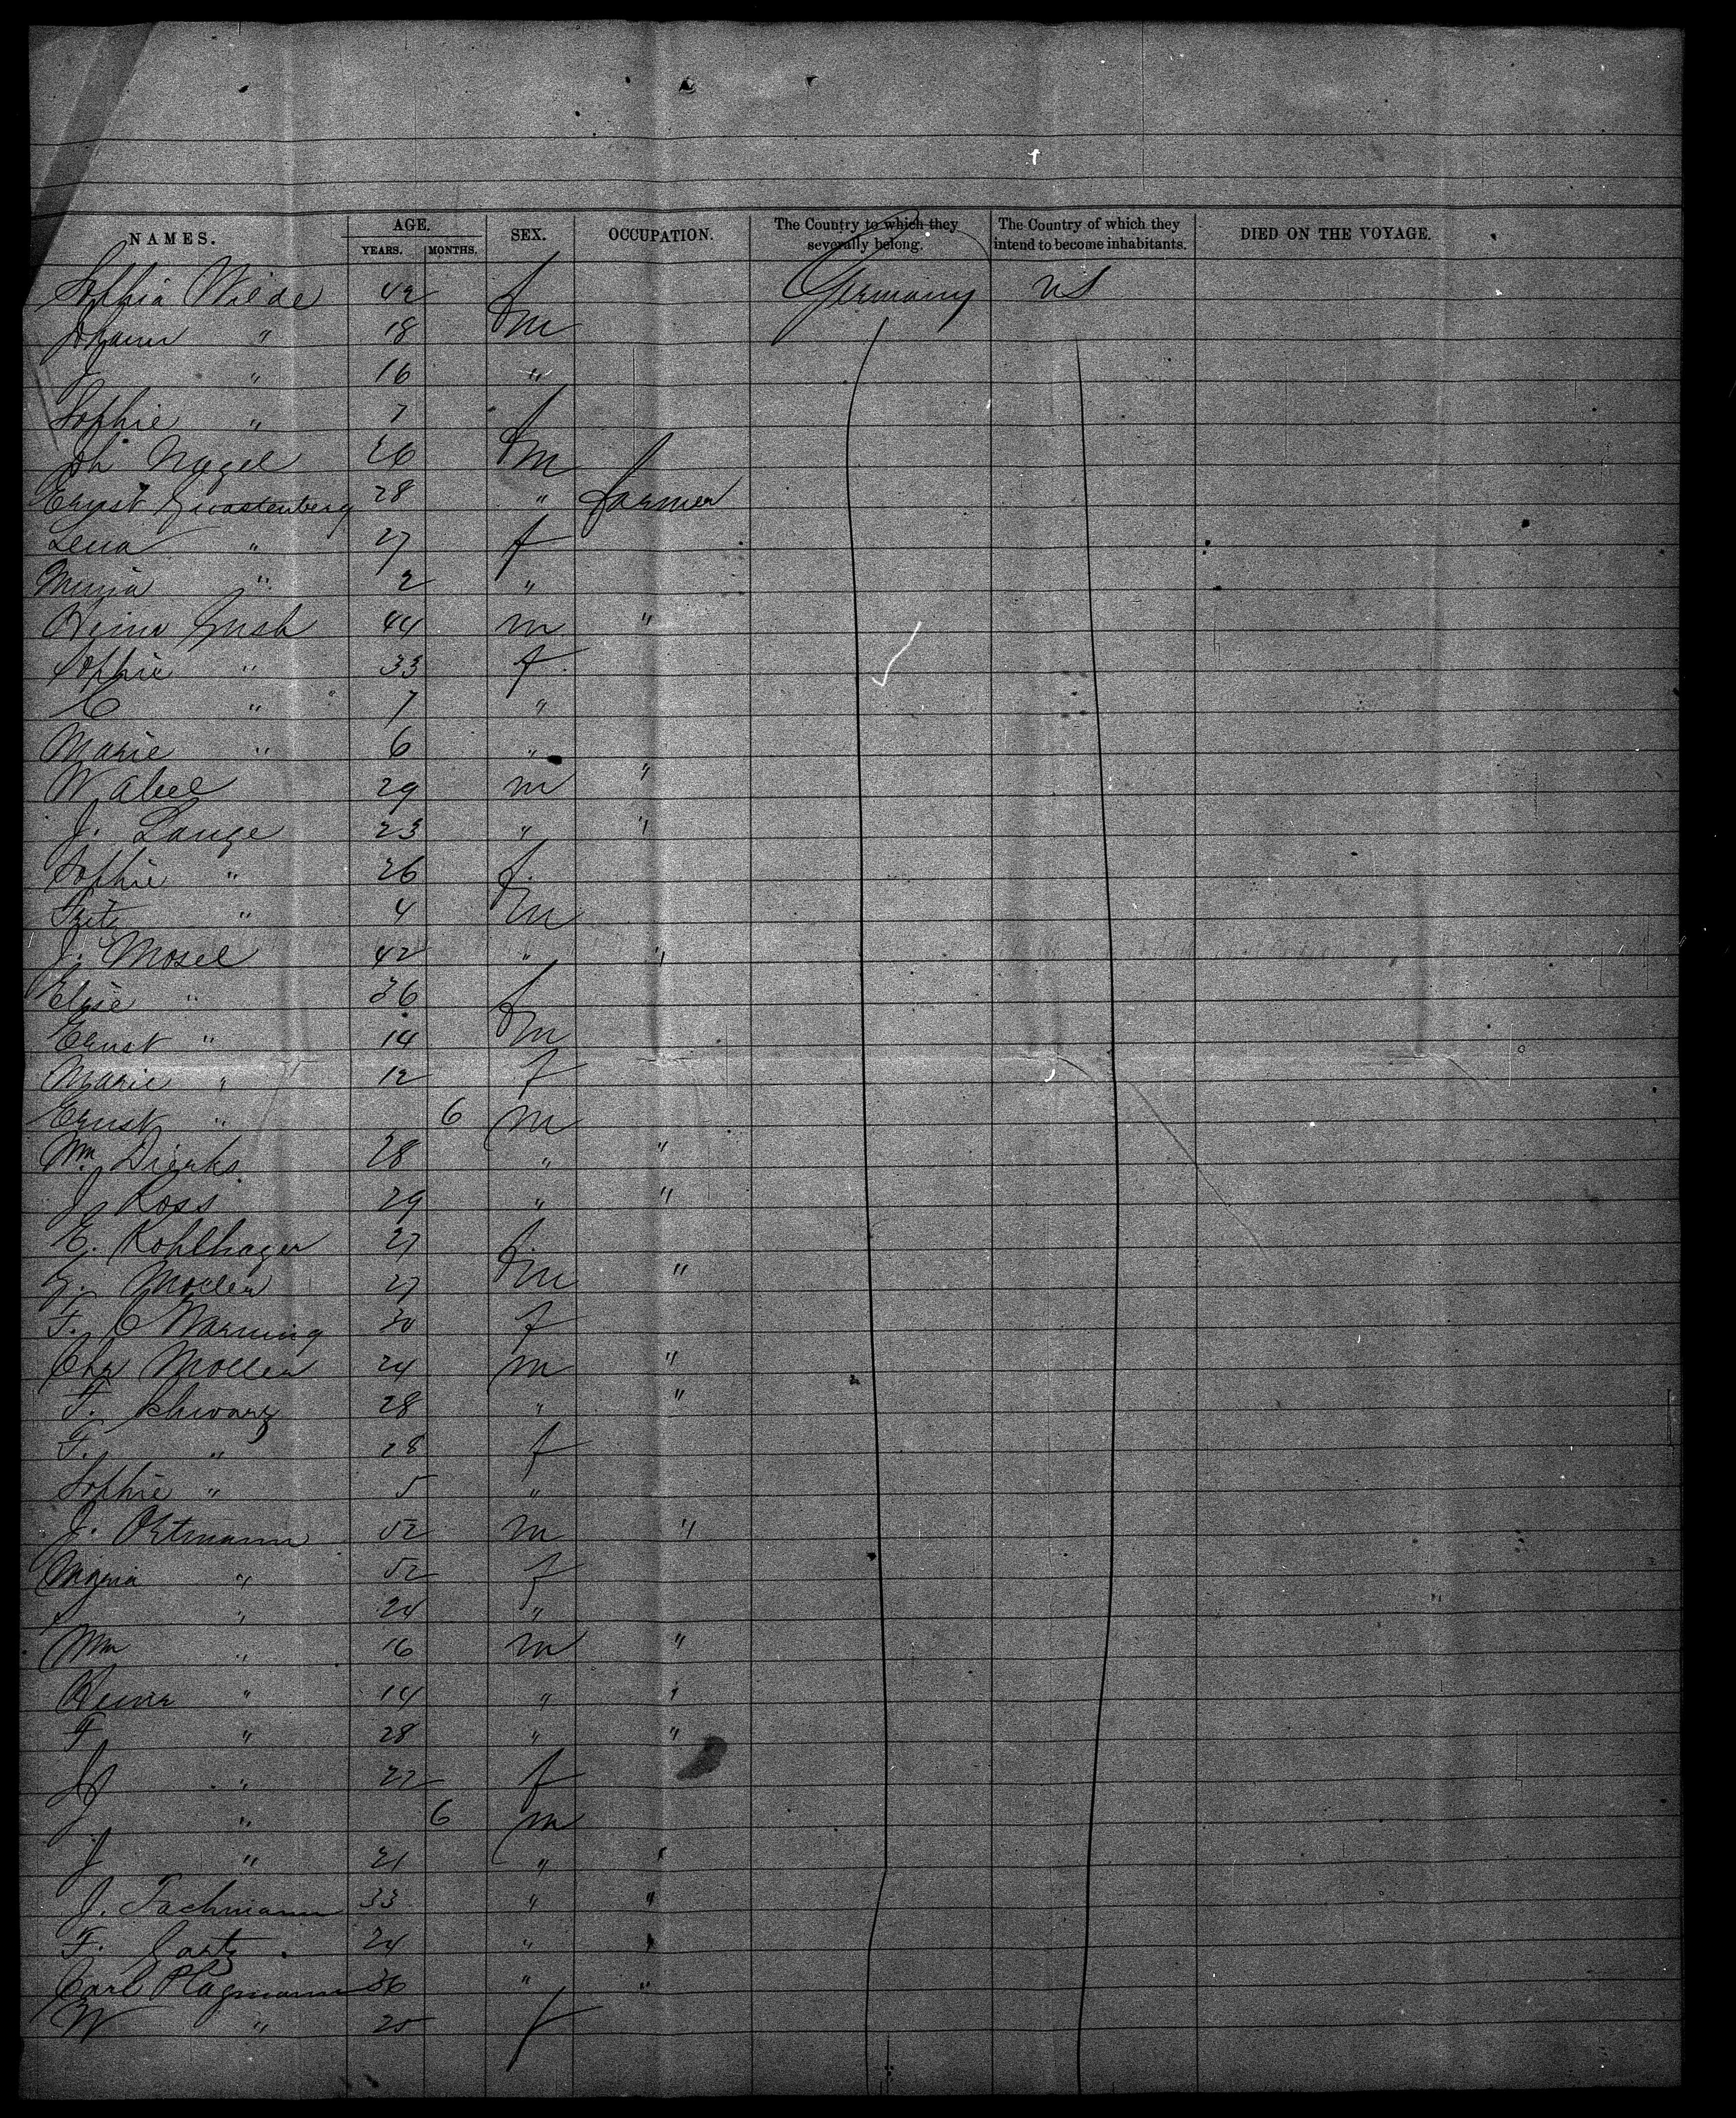 NAMES. AGE. YEARS. MONTHS. SEX. OCCUPATION. The Country to which they severally belong. The Country of which they intend to become inhabitants. DIED ON THE VOYAGE.
Sophia Wilde 42 f Germany US
Johann " 18 m
J " 16 "
Sophie " 7 f
Joh Nagel 26 m
Ernst 28 " farmer
Lena " 27 f
" 2 "
44 m "
Sophie " 33 f
C " 7 "
Marie " 6 "
W Abel 29 m "
J. Lange 23 " "
Sophie " 26 f.
Fritz " 4 m
J. Mosel 42 " "
Elise " 36 f
Ernst " 14 m
Marie " 12 f
Ernst " 6 m
Wm. Dierks 28 " "
J Ross 29 " "
E. Kohlhager 27 f.
G. Moller 27 m "
F. C Warming 30 f
Chr Moller 24 m "
F. Schwarz 28 " "
F. " 28 f
Sophie " 5 "
J. Ortmann 52 m "
Maria " 52 f
" 24 "
Wm " 16 m "
Heinr " 14 " "
F " 28 " "
" 22 f
J " 6 m
J " 21 " "
J. Tachmann 33 " "
F. Gartz 24 " "
Carl Plagmann 36 " "
W " 25 f